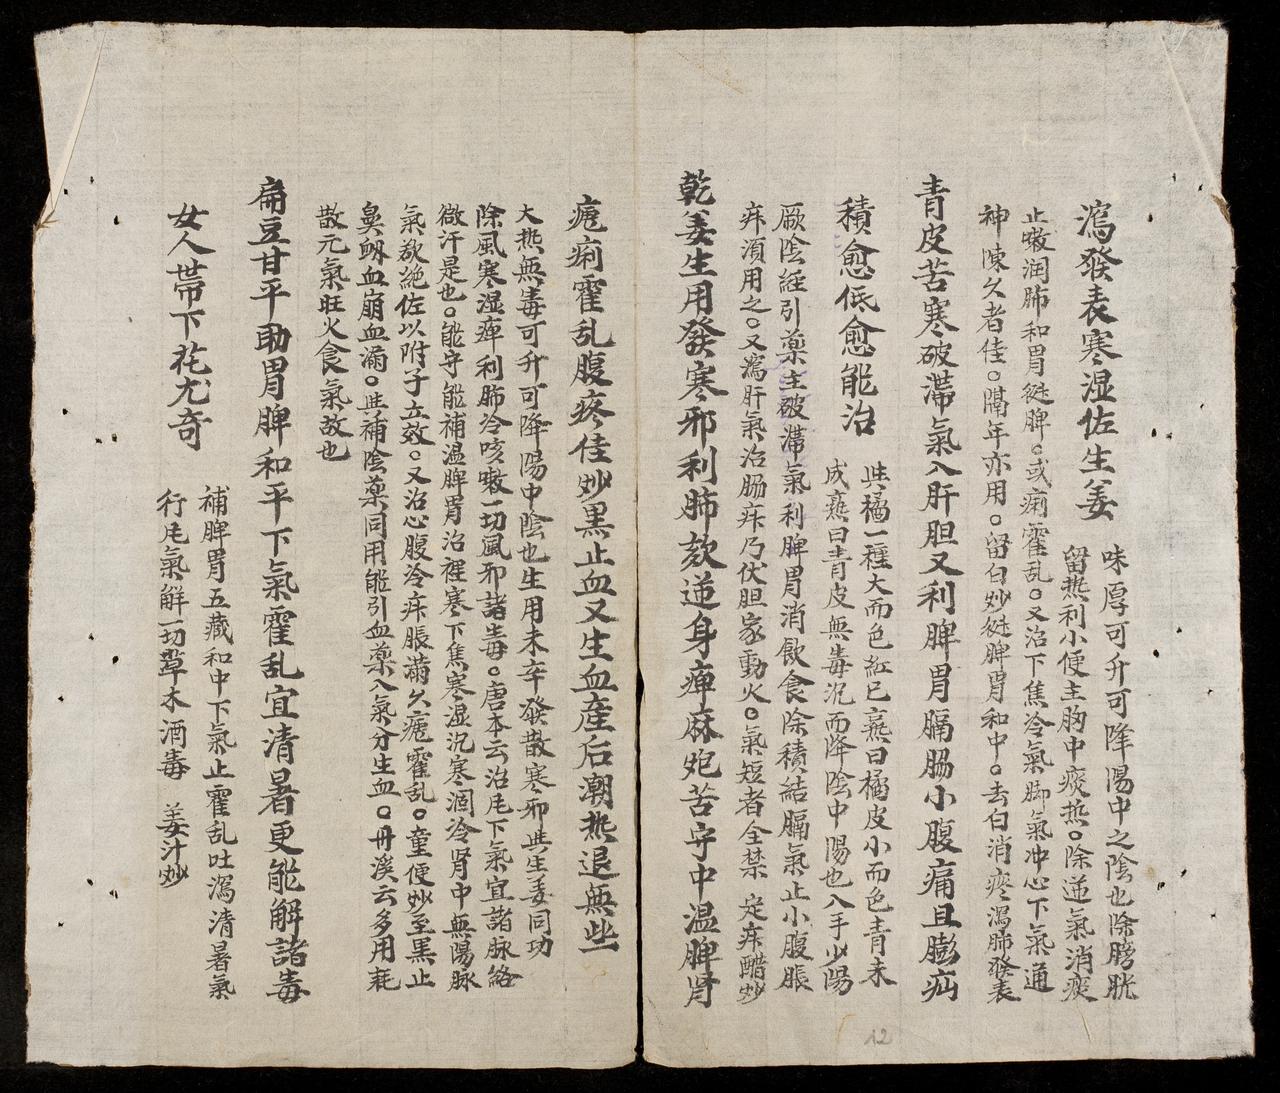 瀉發表寒湿佐生姜
味厚可升可降陽中之陰也除膀胱
留热利小便主胸中痰热。除逆氣消痰
止嗽润肺和胃健脾。或痢霍乱。又治下焦冷氣脚氣冲心下氣通
神陳久者佳。隔年亦用。留白炒健脾胃和中。去白消痰瀉肺發表
青皮苦寒破滞氣入肝胆又利脾胃膈肠小腹痛且膨疝
積愈低愈能治
此橘一種大而色紅已熟曰橘皮小而色青未
成熟曰青皮無毒沉而降陰中陽也入手少陽
厥陰經引藥主破滞氣利脾胃消飲食除積結膈氣止小腹脹
疝須用之。又瀉肝氣治肠疝乃伏胆家動火。氣短者全禁 定疝醋炒
乾姜生用發寒邪利肺欬逆身痺麻炮苦守中温脾肾
瘧痢霍乱腹疼佳炒黒止血又生血産后潮热退無些
大热無毒可升可降陽中陰也生用未辛發散寒邪此生姜同功
除風寒湿痺利肺冷咳嗽一切風邪諸毒。唐本云治尾下氣宜諸脉絡
微汗是也。能守能補温脾胃治裡寒下焦寒湿沉寒涸冷肾中無陽脉
氣欲絶佐以附子立效。又治心腹冷疝脹满久瘧霍乱。童便炒至黒止
鼻衂血崩血漏。此補陰藥同用能引血藥入氣分生血。丹溪云多用耗
散元氣旺火食氣故也
扁豆甘平助胃脾和平下氣霍乱宜清暑更能解諸毒
女人带下花尤奇
補脾胃五藏和中下氣止霍乱吐瀉清暑氣
行尾氣解一切草木酒毒 姜汁炒
12